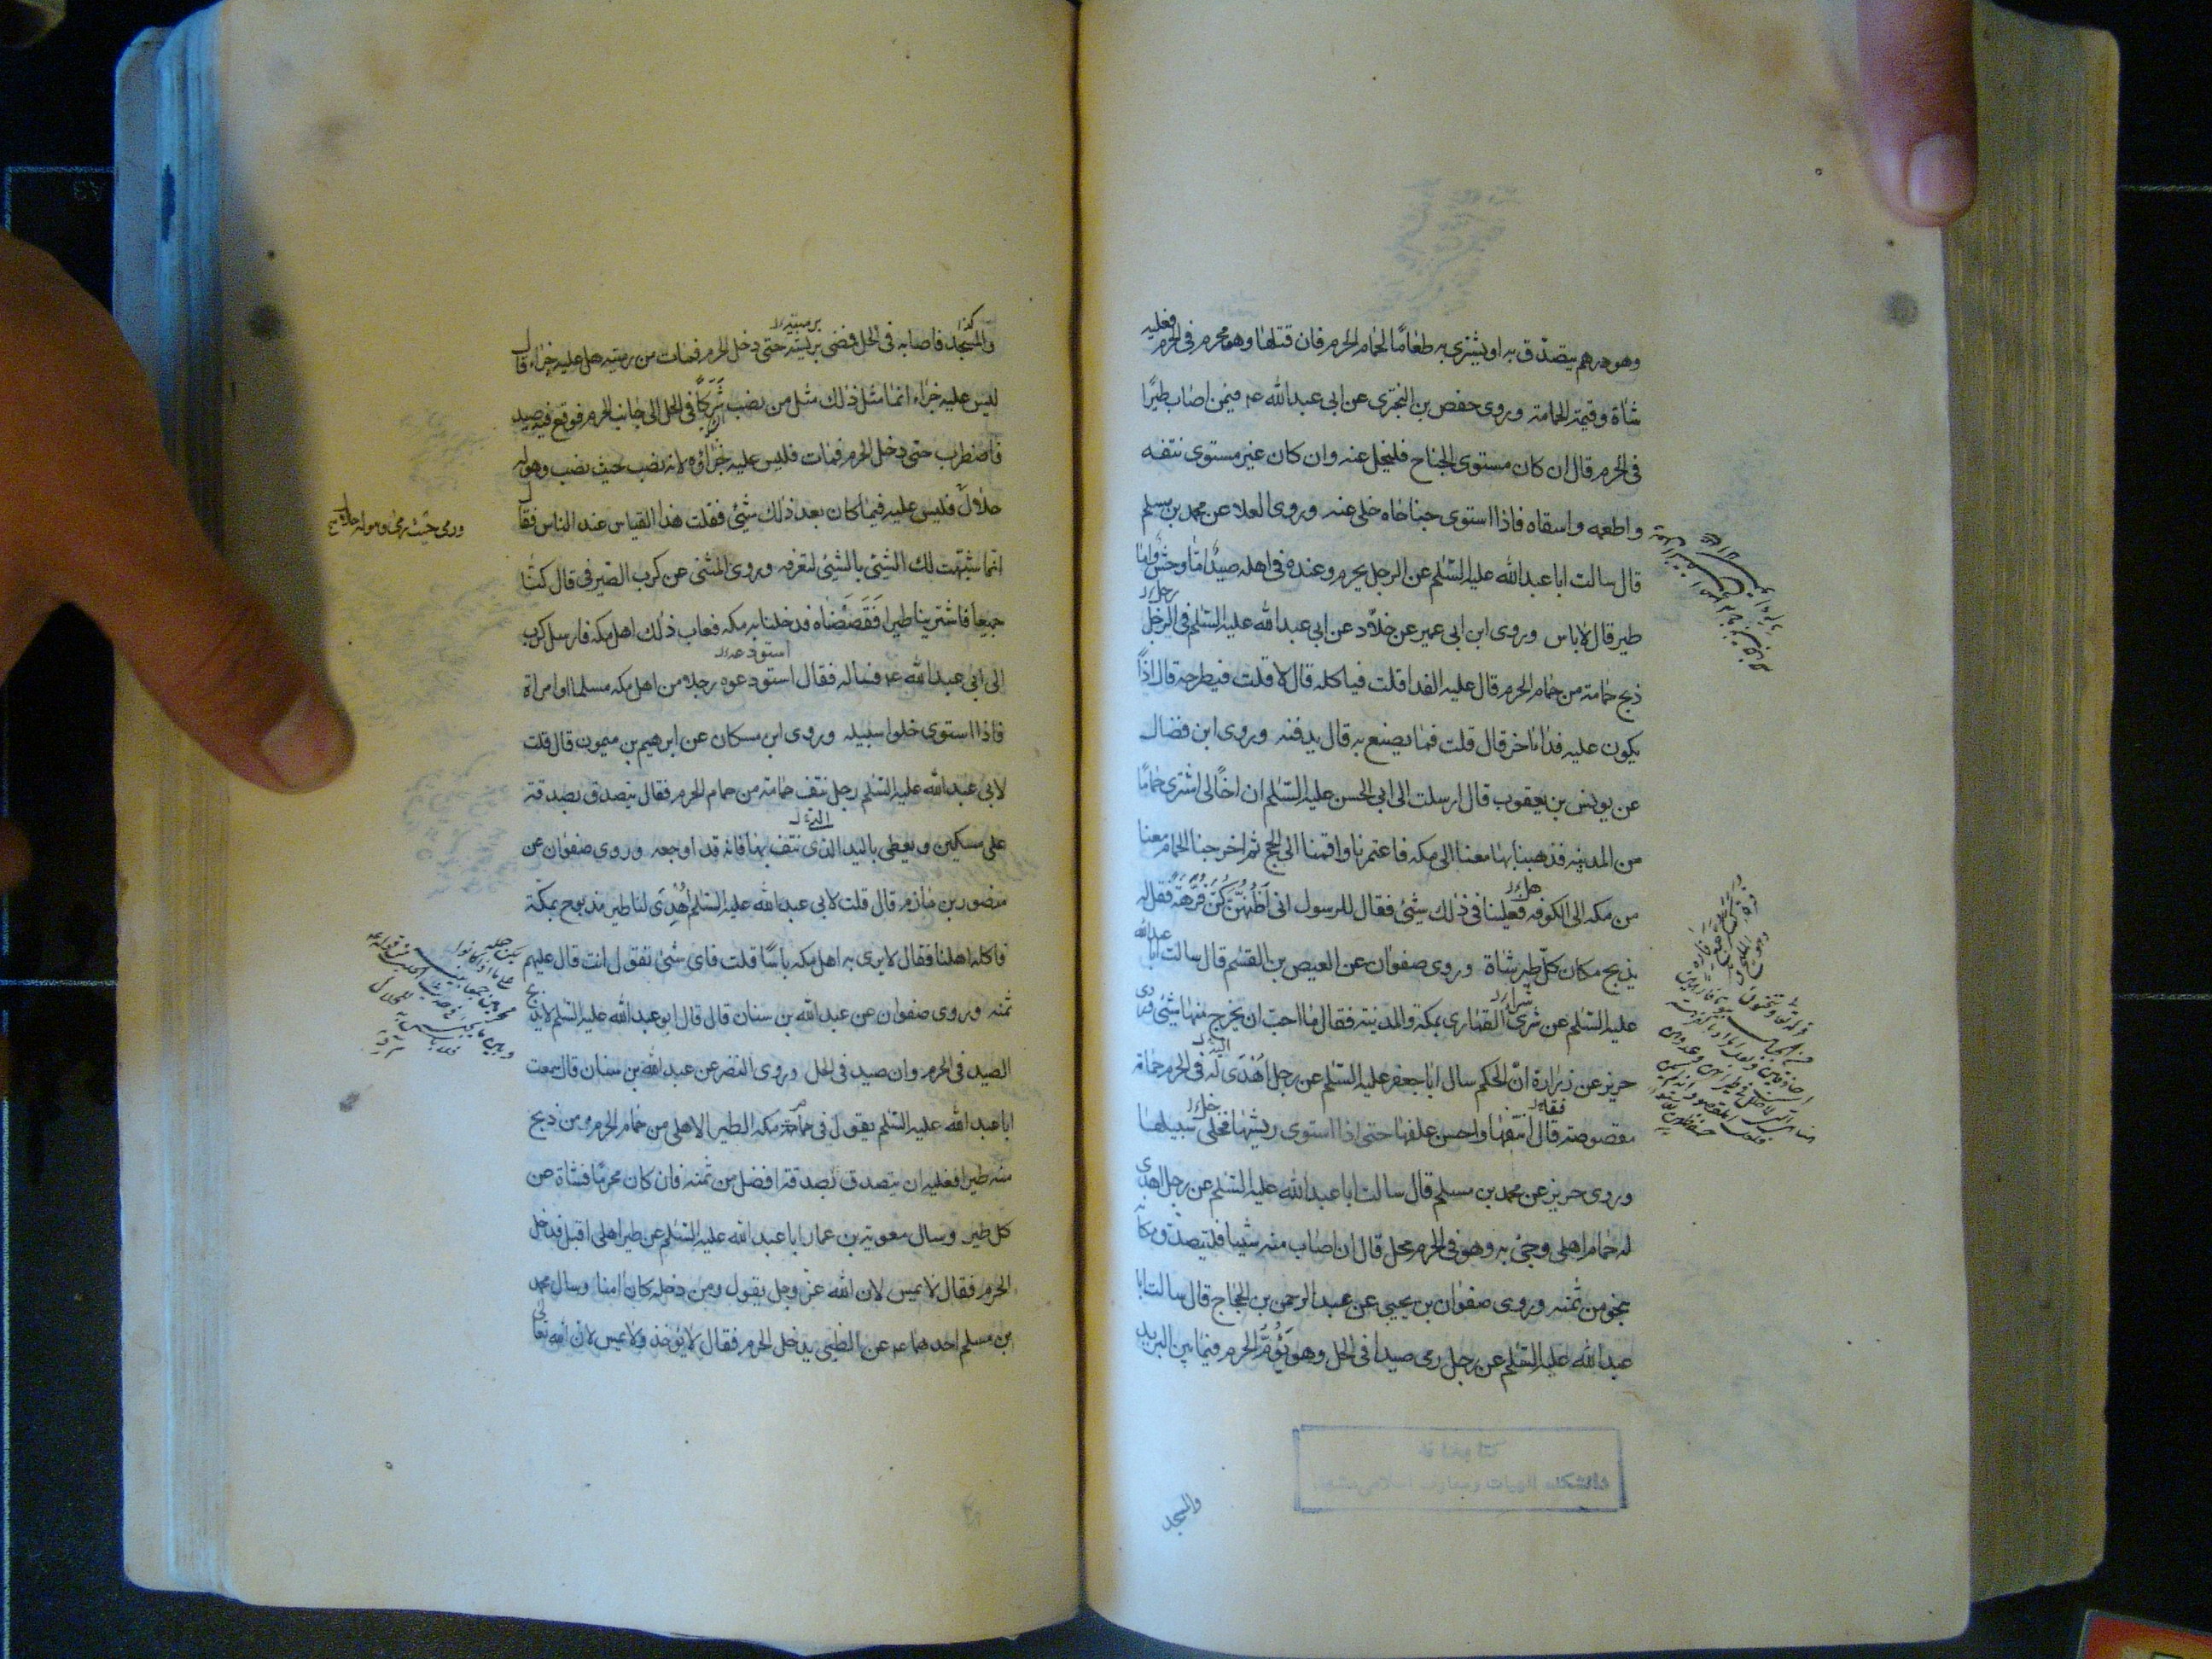 وهو درهم يتصدق به او يشترى به طعاما لحمام الحرم فان قتلها وهو محرم فى الحرم فعليه
شاة وقيمة الحمامة وروى حفص بن البخترى عن ابى عبدالله ع فيمن اصاب طيرا
فى الحرم قال ان كان مستوى الجناح فليخل عنه وان كان غير مستوى نتفه
واطعمه واسقاه فاذا استوى جناحاه خلى عنه وروى العلا عن محمد بن مسلم
قال سالت ابا عبدالله عليه السلم عن الرجل يحرم وعنده فى اهله صيد اما وحش واما
طير قال لا باس وروى ابن ابى عمير عن خلاد عن ابى عبدالله عليه السلم فى الرجل
ذبح حمامة من حمام الحرم قال عليه الفدا قلت فياكله قال لا قلت فيطرحه قال اذا
يكون عليه فدا اخر قال قلت فما يصنع به قال يدفنه وروى ابن فضال
عن يونس بن يعقوب قال ارسلت الى ابى الحسن عليه السلم ان اخا لى اشترى حماما
من المدينه فذهبنا بها معنا الى مكه فاعتمرنا واقمنا الى الحج ثم اخرجنا الحمام معنا
من مكه الى الكوفه فعلينا فى ذلك شئ فقال للرسول انى اظنهن كن فرهة فقل له
يذبح مكان كل طير شاة وروى صفوان عن العيص بن القسم قال سالت ابا عبدالله
عليه السلم عن شرى القمارى بمكة والمدينة فقال ما احب ان يخرج منها شئ وروى
حريز عن زرارة ان الحكم سال ابا جعفر عليه السلم عن رجل اهدى له فى الحرم حمامة
مقصوصة قال انتفها واحسن علفها حتى اذا استوى ريشها فخلى سبيلها
وروى حريز عن محمد بن مسلم قال سالت ابا عبدالله عليه السلم عن رجل اهدى
له حمام اهلى وجئ به وهو فى الحرم محل قال ان اصاب منه شيئا فليتصدق مكانه
بنحو من ثمنه وروى صفوان بن يحيى عن عبد الرحمن بن الحجاج قال سالت ابا
عبدالله عليه السلم عن رجل رمى صيدا فى الحل وهو يؤم الحرم فيما بين البريد
والمسجد
والمسجد فاصابه فى الحل فمضى برميته حتى دخل الحرم فمات من رميته هل عليه جزاء قال
ليس عليه جزاء انما مثل ذلك مثل من نصب شركا فى الحل الى جانب الحرم فوقع فيه صيد
فاضطرب حتى دخل الحرم فمات فليس عليه جزاؤه لانه نصب حيث نصب وهو له
حلال فليس عليه فيما كان بعد ذلك شئ فقلت هذا القياس عند الناس فقال
ورمى حيث رمى وهو له حلال
انما شبهت لك الشئ بالشئ لتعرفه وروى المثنى عن كرب الصيرفى قال كنا
جميعا فاشترينا طيرا فقصصناه فدخلنا به مكه فعاب ذلك اهل مكه فارسل كرب
الى ابى عبدالله ع فساله فقال استودعوه رجلا من اهل مكه مسلما او امراة
فاذا استوى خلوا سبيله وروى ابن مسكان عن ابرهيم بن ميمون قال قلت
لابى عبدالله عليه السلم رجل نتف حمامة من حمام الحرم فقال يتصدق بصدقة
على مسكين ويعطى باليد الذى نتف بها فانه قد اوجعه وروى صفوان عن
منصور بن حازم قال قلت لابى عبدالله عليه السلم اهدى لنا طير مذبوح بمكة
فاكله اهلنا فقال لا يرى به اهل مكه باسا قلت فاى شئ تقول انت قال عليهم
ثمنه وروى صفوان عن عبدالله بن سنان قال قال ابو عبدالله عليه السلم لا يذبح
الصيد فى الحرم وان صيد فى الحل وروى النضر عن عبدالله بن سنان قال سمعت
ابا عبدالله عليه السلم يقول فى حمام مكه الطير الاهلى من حمام الحرم من ذبح
منه طيرا فعليه ان يتصدق بصدقة افضل من ثمنه فان كان محرما فشاة عن
كل طير وسال معوية بن عمار ابا عبدالله عليه السلم عن طير اهلى اقبل فدخل
الحرم فقال لا يمس لان الله عز وجل يقول ومن دخله كان امنا وسال محمد
بن مسلم احدهما ع عن الظبى يدخل الحرم فقال لا يؤخذ ولا يمس لان الله تعالى